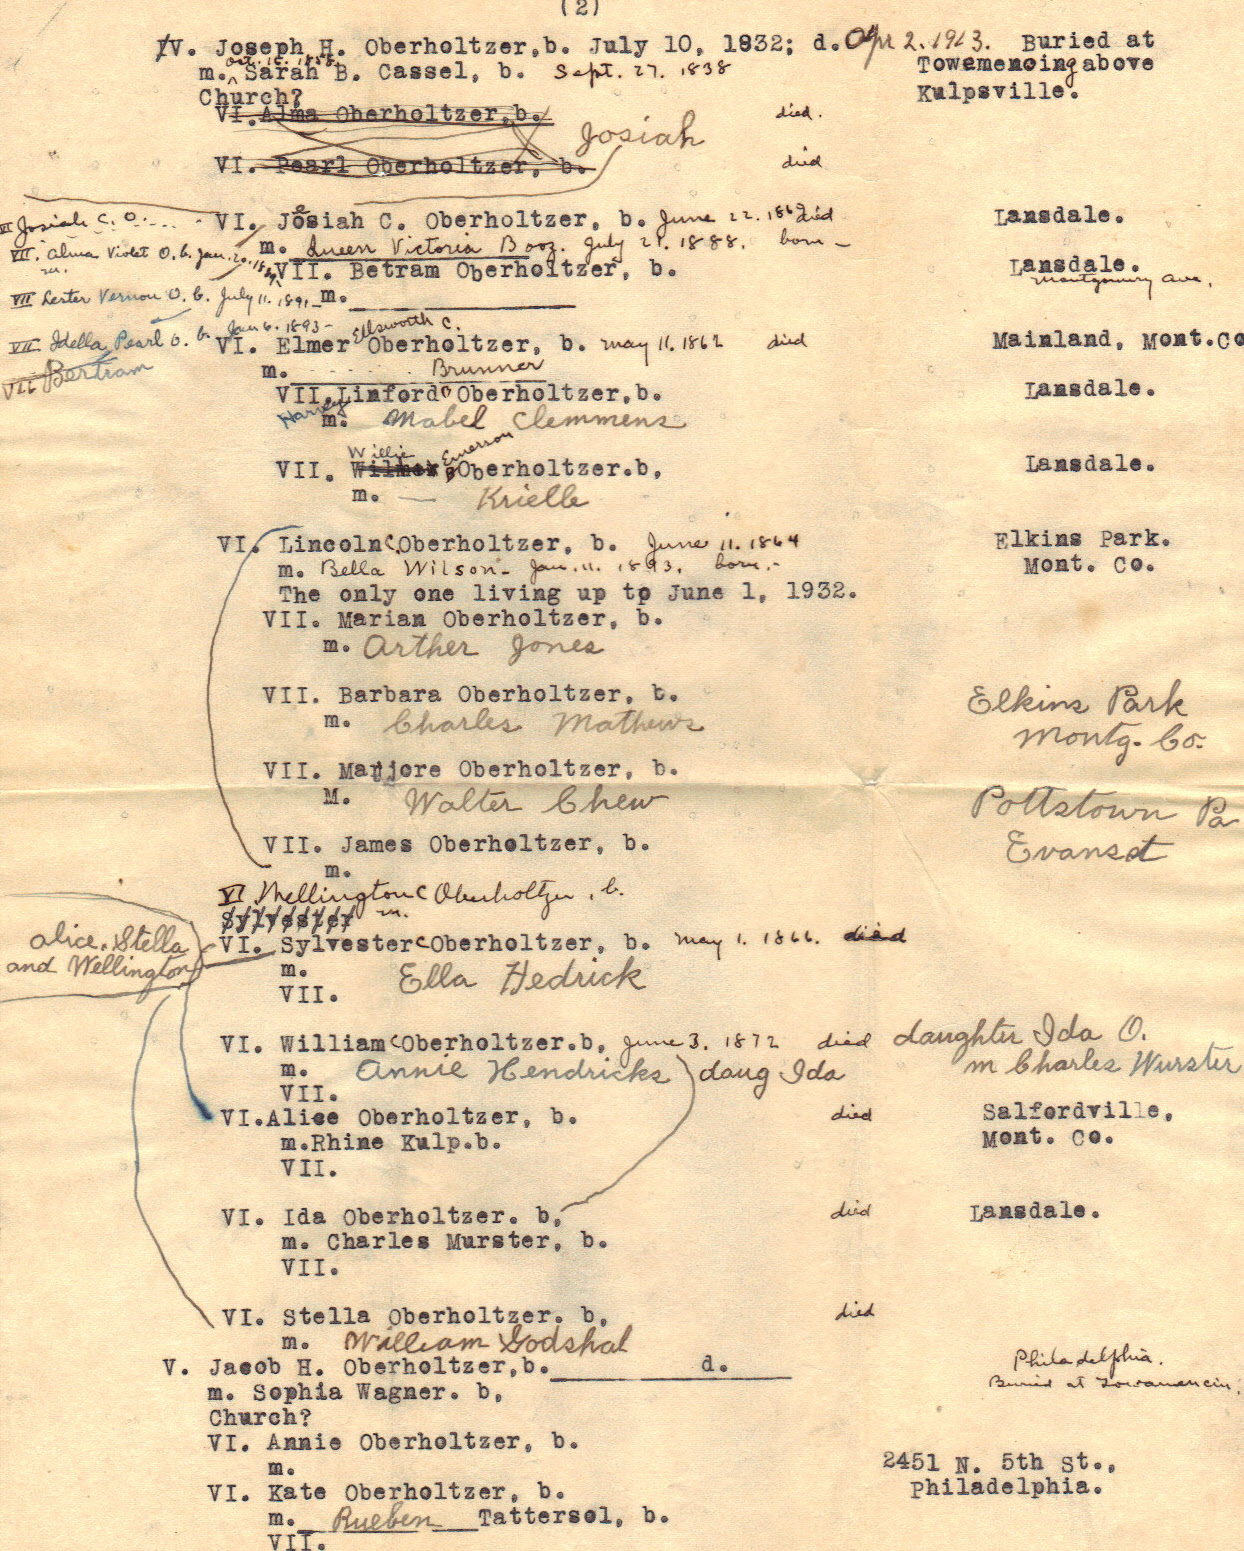 (2)
V. Joseph H. Oberholtzer, b. July 10, 1832; d. Apr 2. 1913. Buried at
Oct. 15. 1858.
m. Sarah B. Cassel, b. Sept. 27. 1838 Towamencing above
Church? Kulpsville.
VI. Alma Oberholtzer, b. died.
Josiah
VI. Pearl Oberholtzer, b. died
VI Josiah C. O. ..... - VI. Josiah C. Oberholtzer, b. June 22. died Lansdale.
VII. Alma Violet O. b. Jan. 20. m. Queen Victoria Booz. July 21. 1888. born -
m. VII. Betram Oberholtzer, b. Lansdale.
Montgomery Ave.
VII Lester Vernon O. b. July 11. 1891 m.
VII Idella Pearl O. b. Jan 6. 1893 -
Ellsworth C.
VI. Elmer Oberholtzer, b. May 11. 1862 died Mainland, Mont.Co
VII Bertram
m. - - - - . Brunner
VII. Linford Oberholtzer, b. Lansdale.
Harvey
m. Mabel Clemmens
Willie Emerson
VII. Wilmer Oberholtzer. b, Lansdale.
m. — Krielle
VI. Lincoln C. Oberholtzer, b. June 11. 1864 Elkins Park.
m. Bella Wilson - Jan. 11. 1893. born. - Mont. Co.
The only one living up to June 1, 1932.
VII. Marian Oberholtzer, b.
m. Arther Jones
VII. Barbara Oberholtzer, b. Elkins Park
m. Charles Mathews Montg. Co.
VII. Marjore Oberholtzer, b.
M. Walter Chew Pottstown Pa
VII. James Oberholtzer, b. Evans st
m.
VI Wellington C Oberholtzer, b.
Sylvester m.
Alice, Stella
and Wellington
VI. Sylvester C Oberholtzer, b. May 1. 1866. died
m. Ella Hedrick
VII.
VI. William C Oberholtzer. b, June 3. 1872 died daughter Ida O.
m. Annie Hendricks daug Ida m Charles Wurster
VII.
VI. Alice Oberholtzer, b. died Salfordville,
m. Rhine Kulp. b. Mont. Co.
VII.
VI. Ida Oberholtzer. b, died Lansdale.
m. Charles Murster, b.
VII.
VI. Stella Oberholtzer. b, died
m. William Godshal
V. Jacob H. Oberholtzer, b. d. Philadelphia.
m. Sophia Wagner. b, Buried at Towamencin.
Church?
VI. Annie Oberholtzer, b.
m. 2451 N. 5th St.,
VI. Kate Oberholtzer, b. Philadelphia.
m. Rueben Tattersol, b.
VII.